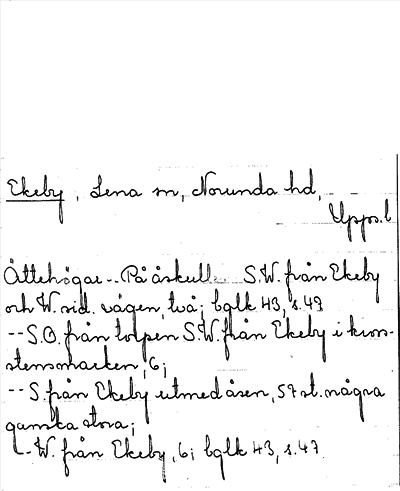 Ekeby, Lena sn, Norunda hd,
Upps. l
Ättehögar -- På åskull. S.W. från Ekeby
och W. sid. vägen, två; bglk 43, s. 49
-- S.O. från torpen S.W. från Ekeby i kron-
stensmarken, 6;
-- S. från Ekeby utmed åsen, 57 st. några
ganska stora;
-- W. från Ekeby, 6; bglk 43, s. 47.